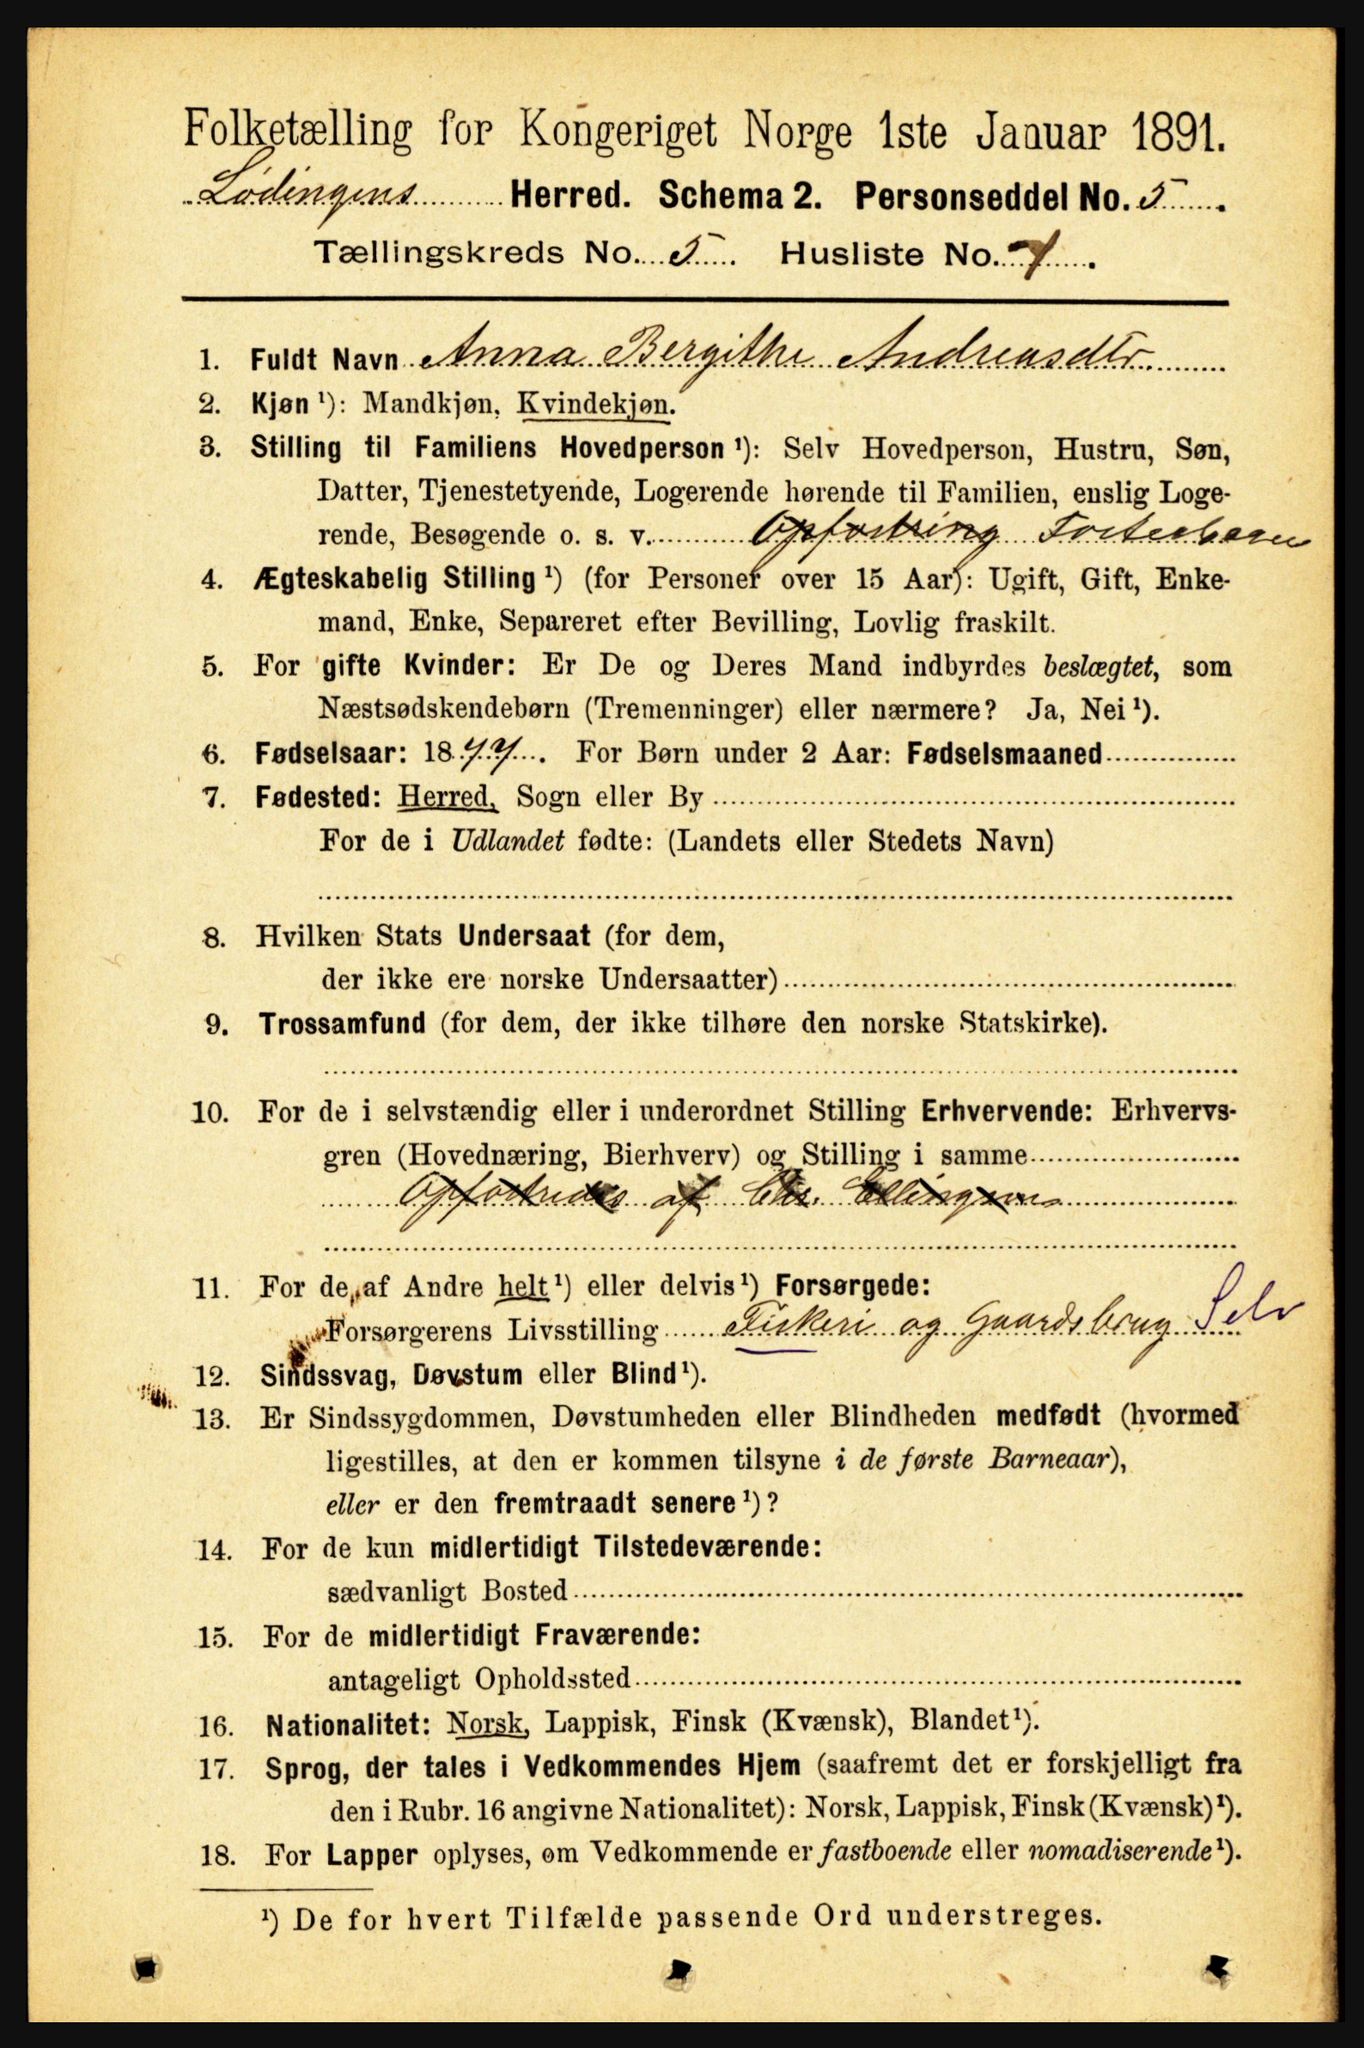 Folketælling for Kongeriget Norge 1ste Januar 1891.
Lødingens Herred. Schema 2. Personseddel No. 5.
Tællingskreds No. 5. Husliste No. 1.
1. Fuldt Navn Anna Bergithe Andreasdtr.
2. Kjøn ¹): Mandkjøn, Kvindekjøn.
3. Stilling til Familiens Hovedperson ¹): Selv Hovedperson, Hustru, Søn,
Datter, Tjenestetyende, Logerende hørende til Familien, enslig Loge-
rende, Besøgende o. s. v. Opfostring Fosterbarn
4. Ægteskabelig Stilling ¹) (for Personer over 15 Aar): Ugift, Gift, Enke-
mand, Enke, Separeret efter Bevilling, Lovlig fraskilt.
5. For gifte Kvinder: Er De og Deres Mand indbyrdes beslægtet, som
Næstsødskendebørn (Tremenninger) eller nærmere? Ja, Nei ¹).
6. Fødselsaar: 1877. For Børn under 2 Aar: Fødselsmaaned
7. Fødested: Herred, Sogn eller By
For de i Udlandet fødte: (Landets eller Stedets Navn)
8. Hvilken Stats Undersaat (for dem,
der ikke ere norske Undersaatter)
9. Trossamfund (for dem, der ikke tilhøre den norske Statskirke).
10. For de i selvstændig eller i underordnet Stilling Erhvervende: Erhvervs-
gren (Hovednæring, Bierhverv) og Stilling i samme
Opfostredes af Chr. Ellingsen
11. For de af Andre helt ¹) eller delvis ¹) Forsørgede:
Forsørgerens Livsstilling Fiskeri og Gaardsbrug Selv
12. Sindssvag, Døvstum eller Blind ¹).
13. Er Sindssygdommen, Døvstumheden eller Blindheden medfødt (hvormed
ligestilles, at den er kommen tilsyne i de første Barneaar),
eller er den fremtraadt senere ¹)?
14. For de kun midlertidigt Tilstedeværende:
sædvanligt Bosted
15. For de midlertidigt Fraværende:
antageligt Opholdssted
16. Nationalitet: Norsk, Lappisk, Finsk (Kvænsk), Blandet ¹).
17. Sprog, der tales i Vedkommendes Hjem (saafremt det er forskjelligt fra
den i Rubr. 16 angivne Nationalitet): Norsk, Lappisk, Finsk (Kvænsk) ¹).
18. For Lapper oplyses, om Vedkommende er fastboende eller nomadiserende ¹).
¹) De for hvert Tilfælde passende Ord understreges.